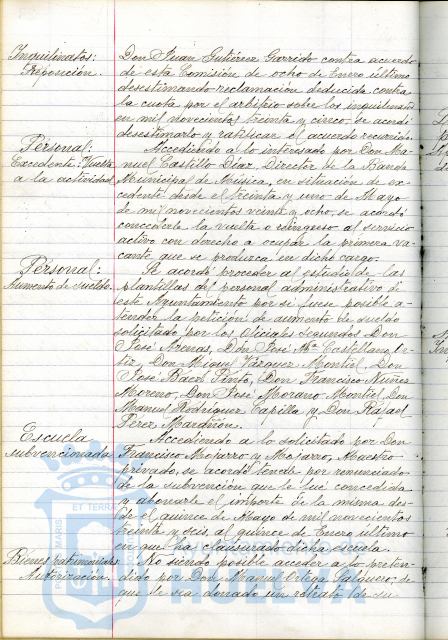 Inquilinatos:
Reposición.
Don Juan Gutiérrez Garrido contra acuerdo
de esta Comisión de ocho de Enero último
desestimando reclamación deducida contra
la cuota por el arbitrio sobre los inquilinatos
en mil novecientos treinta y cinco se acordó
desestimarlo y ratificar el acuerdo recurrido.
Personal:
Excedente: Vuelta
a la actividad
Accediendo a lo interesado por Don Ma-
nuel Castillo Díaz Director de la Banda
Municipal de Música, en situación de ex-
cedente desde el treinta y uno de Mayo
de mil novecientos veinte y ocho, se acordó
concederle la vuelta o reingreso al servicio
activo con derecho a ocupar la primera va-
cante que se produzca en dicho cargo.
Personal:
Aumento de sueldo.
Se acordó proceder al estudio de las
plantillas del personal administrativo de
este Ayuntamiento por si fuese posible a-
tender la petición de aumento de sueldo
solicitado por los Oficiales segundos Don
José Arenas, Don José Mª Castellano Or-
tiz, Don Miguel Vázquez Montiel, Don
José Báez Pinto, Don Francisco Núñez
Moreno, Don José Morano Montiel, Don
Manuel Rodríguez Capilla y Don Rafael
Pérez
Escuela
subvencionada
Accediendo a lo solicitado por Don
Francisco Mojarro y Mojarro, Maestro
privado, se acordó tenerle por renunciado
de la subvención que le fué concedida
y abonarle el importe de la misma des-
de el quince de Mayo de mil novecientos
treinta y seis, al quince de Enero último
en que ha clausurado dicha escuela.
Bienes patrimoniales
Autorización.
No siendo posible acceder a lo preten-
dido por Don Manuel Ortega Salguero, de
que le sea donado un retrato de su
ET TERRA
MARIS
HUELVA